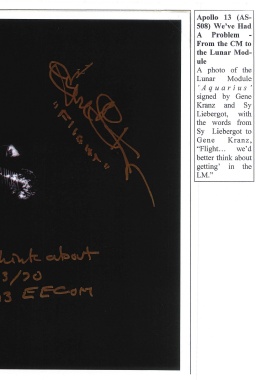 "Flight"
think about
3/70
13 EECOM
Apollo 13 (AS-
508) We've Had
A Problem -
From the CM to
the Lunar Mod-
ule
A photo of the
Lunar Module
'Aquarius'
signed by Gene
Kranz and Sy
Liebergot, with
the words from
Sy Liebergot to
Gene Kranz,
"Flight... we'd
better think about
getting' in the
LM."